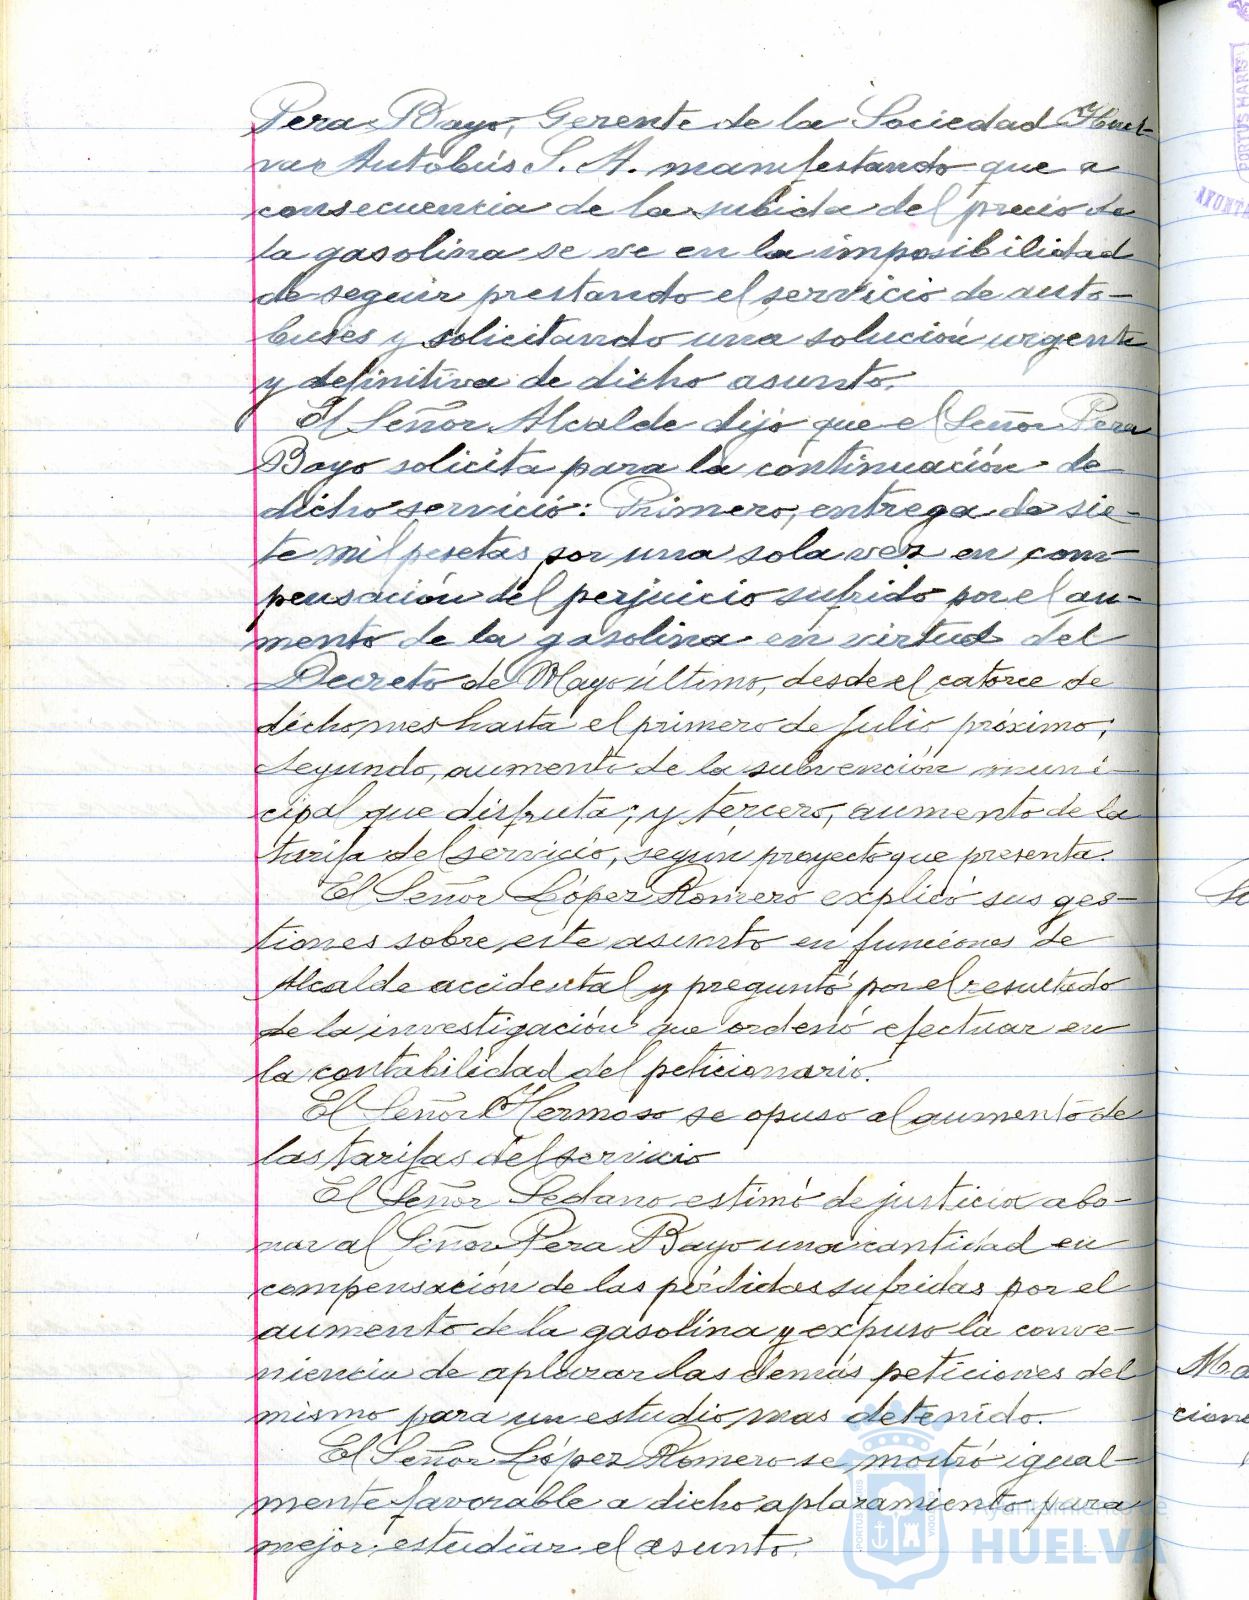 Pera Bayo, Gerente de la Sociedad Huel-
var Autobús S. A. manifestando que a
consecuencia de la subida del precio de
la gasolina se ve en la imposibilidad
de seguir prestando el servicio de auto-
buses y solicitando una solución urgente
y definitiva de dicho asunto.
El Señor Alcalde dijo que el Señor Pera
Bayo solicita para la continuación de
dicho servicio: Primero, entrega de sie-
te mil pesetas por una sola vez en com-
pensación del perjuicio sufrido por el au-
mento de la gasolina en virtud del
Decreto de Mayo último, desde el catorce de
dicho mes hasta el primero de Julio próximo;
Segundo, aumento de la subvención muni-
cipal que disfruta; y tercero, aumento de la
tarifa del servicio, según proyecto que presenta.
El Señor López Romero explicó sus ges-
tiones sobre este asunto en funciones de
Alcalde accidental y preguntó por el resultado
de la investigación que ordenó efectuar en
la contabilidad del peticionario.
El Señor Hermoso se opuso al aumento de
las tarifas del servicio
El Señor Sedano estimó de justicia abo-
nar al Señor Pera Bayo una cantidad en
compensación de las pérdidas sufridas por el
aumento de la gasolina y expuso la conve-
niencia de aplazar las demás peticiones del
mismo para un estudio mas detenido.
El Señor López Romero se mostró igual-
mente favorable a dicho aplazamiento para
mejor estudiar el asunto.
PORTUS MARIS
Ma
cione
Ayuntamiento de
HUELVA